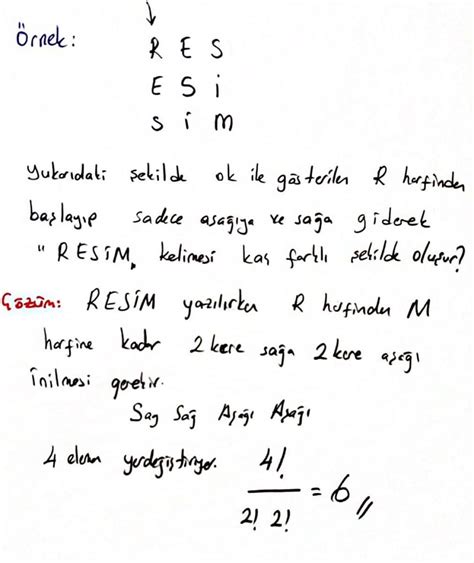 Örnek:
R E S
E S İ
S İ M
Yukarıdaki şekilde ok ile gösterilen R harfinden
başlayıp sadece aşağıya ve sağa giderek
"RESİM" kelimesi kaç farklı şekilde oluşur?
Çözüm: RESİM yazılırken R harfinden M
harfine kadar 2 kere sağa 2 kere aşağı
inilmesi gerekir.
Sağ Sağ Aşağı Aşağı
4 eleman yerdeğiştiriyor. 4!/2! 2! = 6 //